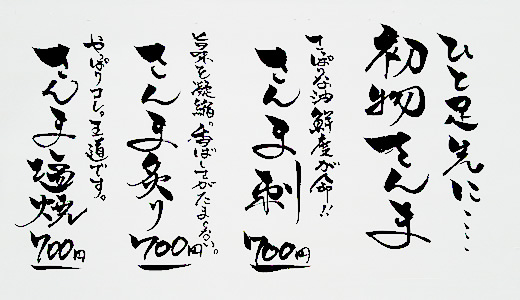 ひと足先に……
初物さんま
さっぱりな油鮮度が命!!
さんま刺
700円
旨味を凝縮。香ばしさがたまらない。
さんま炙り
700円
やっぱりコレ。王道です。
さんま塩焼
700円